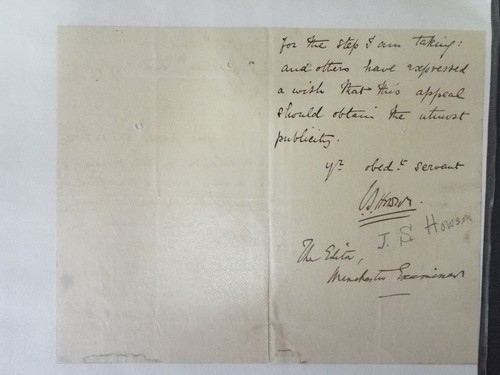 for the step I am taking:
and others have expressed
a wish that this appeal
should obtain the utmost
publicity.
yr obedt servant
J.S.Howson.
J. S Howson
The Editor,
Manchester Examiner